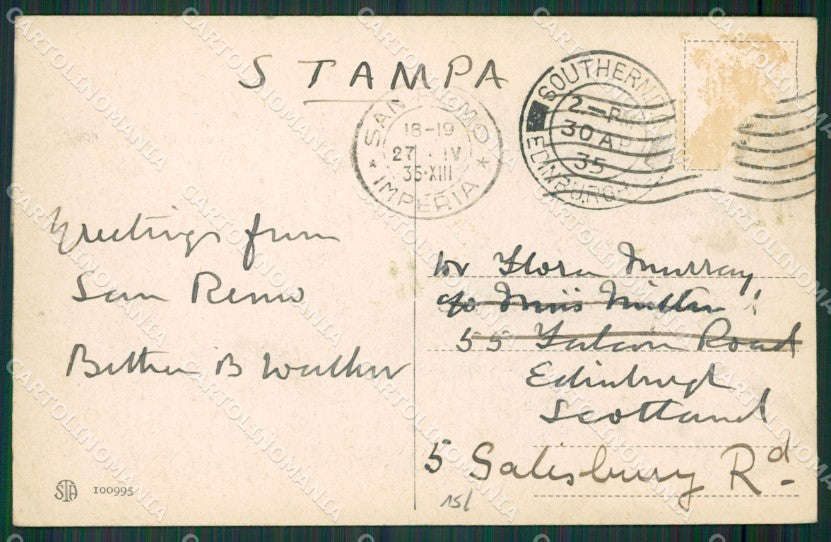 STAMPA
SAN REMO
18-19
27 . IV
35-XIII
IMPERIA
SOUTHERN
2-P
30 AP
35
EDINBURGH
Greetings from
San Remo
B Walker
Dr Flora Murray
c/o Miss
55 Falcon Road
Edinburgh
Scotland
5 Salisbury Rd
STA 100995
15/
CARTOLINOMANIA